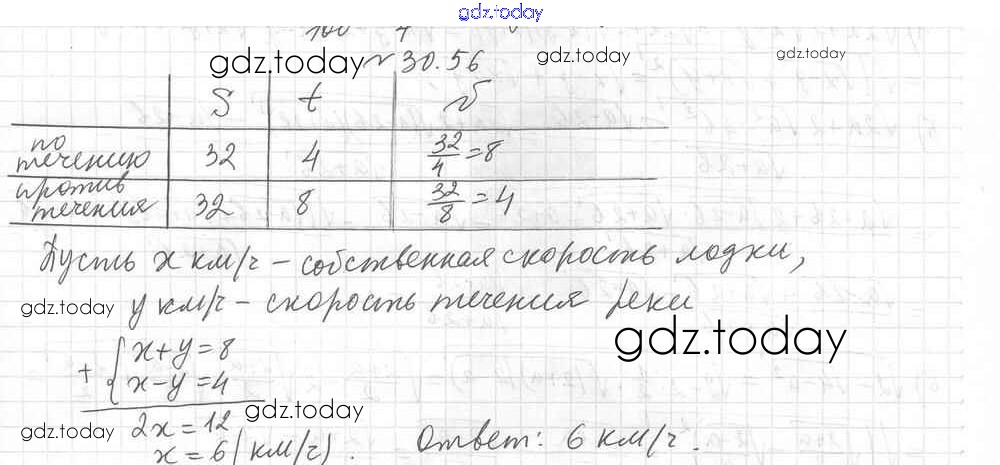 gdz.today
gdz.today № 30.56 gdz.today gdz.today
S t v
по течению 32 4 32/4 = 8
против течения 32 8 32/8 = 4
Пусть x км/ч – собственная скорость лодки,
gdz.today y км/ч – скорость течения реки
gdz.today
+ { x + y = 8
x – y = 4
gdz.today
gdz.today 2x = 12
x = 6 (км/ч). Ответ: 6 км/ч.